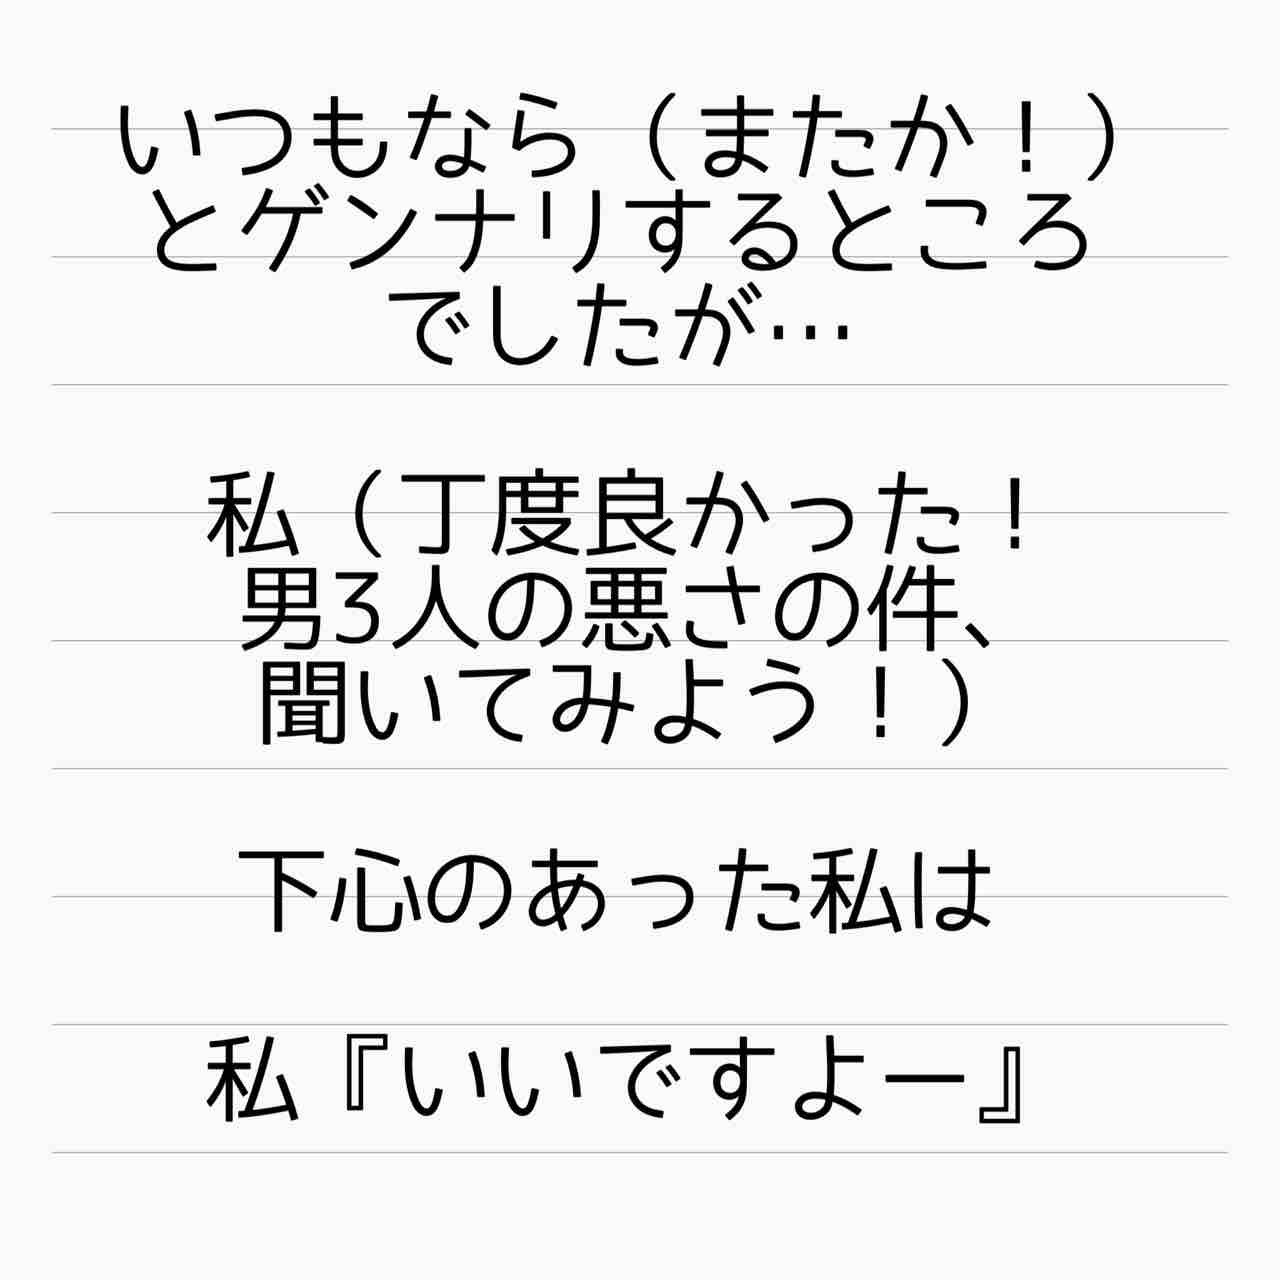 いつもなら（またか！）
とゲンナリするところ
でしたが…
私（丁度良かった！
男3人の悪さの件、
聞いてみよう！）
下心のあった私は
私『いいですよー』